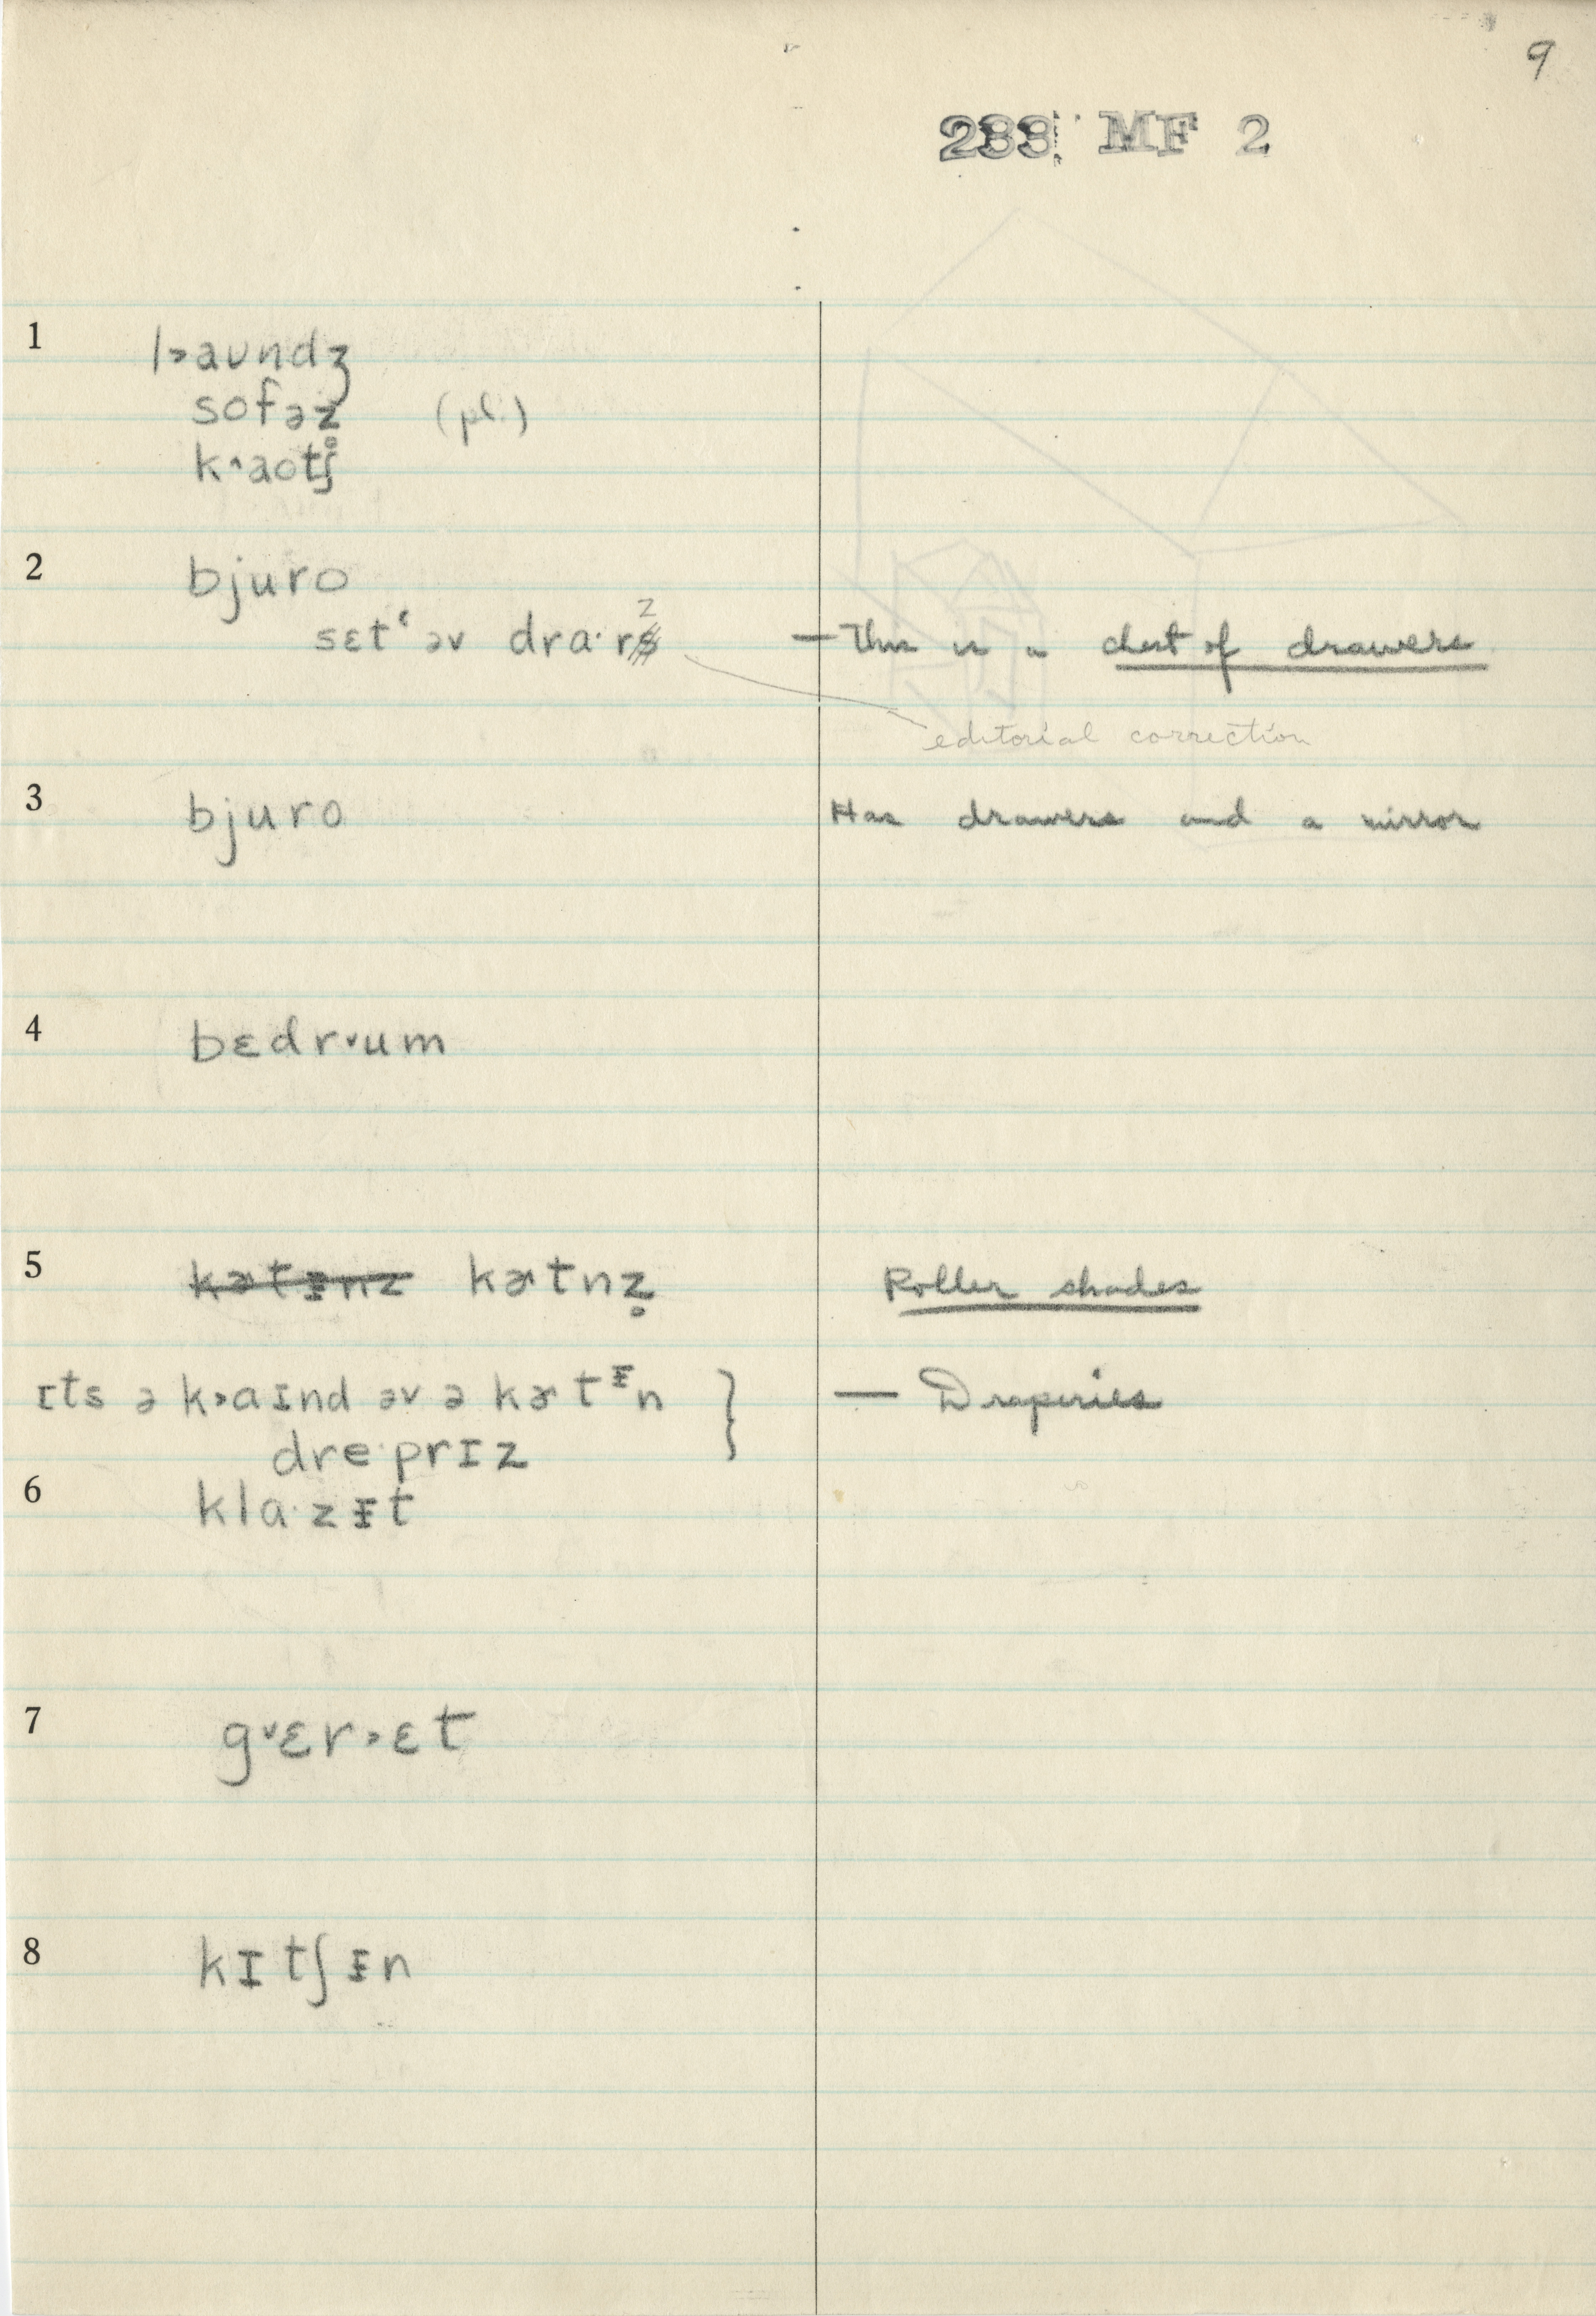 9
233 MF 2
1 l˃aundʒ
sofəz̥ (pl.)
k˄aotʃ
2 bjuro
sɛtʻ əv dra·rz — This is a chest of drawers
editorial correction
3 bjuro Has drawers and a mirror
4 bɛdr˅um
5 kɚtᵻnz kɚtnz̥ Roller shades
ɪts ə k˃aɪnd əv ə kɚtᵻn } — Draperies
dre·prɪz
6 kla·zᵻt
7 g˅ɛr˃ɛt
8 kɪtʃᵻn